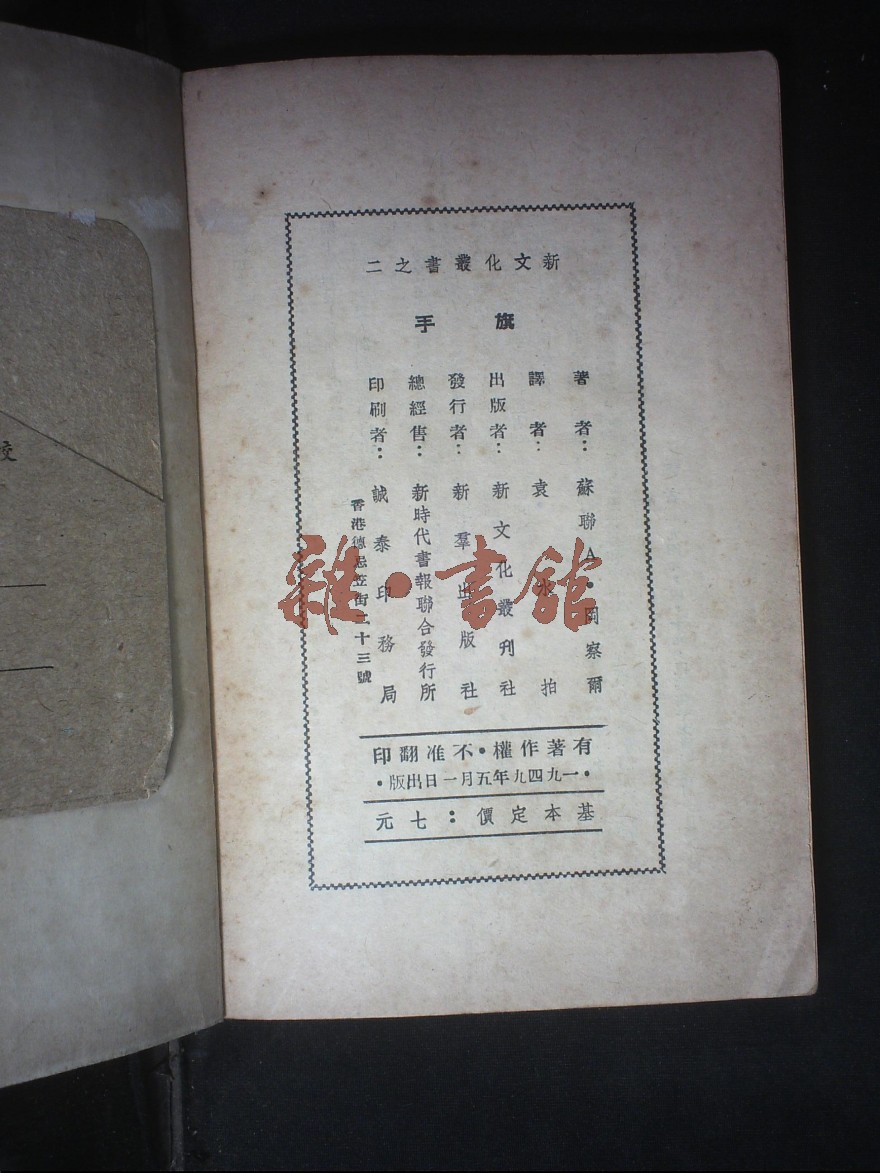 新文化叢書之二
旗手
著者：蘇聯A·岡察爾
譯者：袁水拍
出版者：新文化叢刊社
發行者：新羣出版社
總經售：新時代書報聯合發行所
印刷者：誠泰印務局
香港德忌笠街二十三號
有著作權·不准翻印
·一九四九年五月一日出版·
基本定價：七元
雜·書館
校